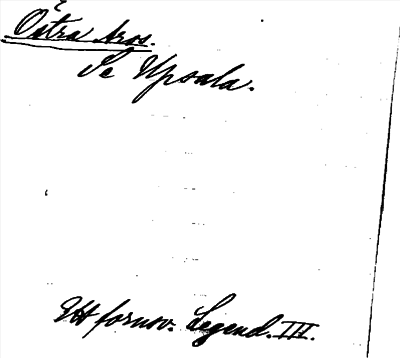 Östra Aros.
Se Upsala.
Ett fornsv. Legend. III.